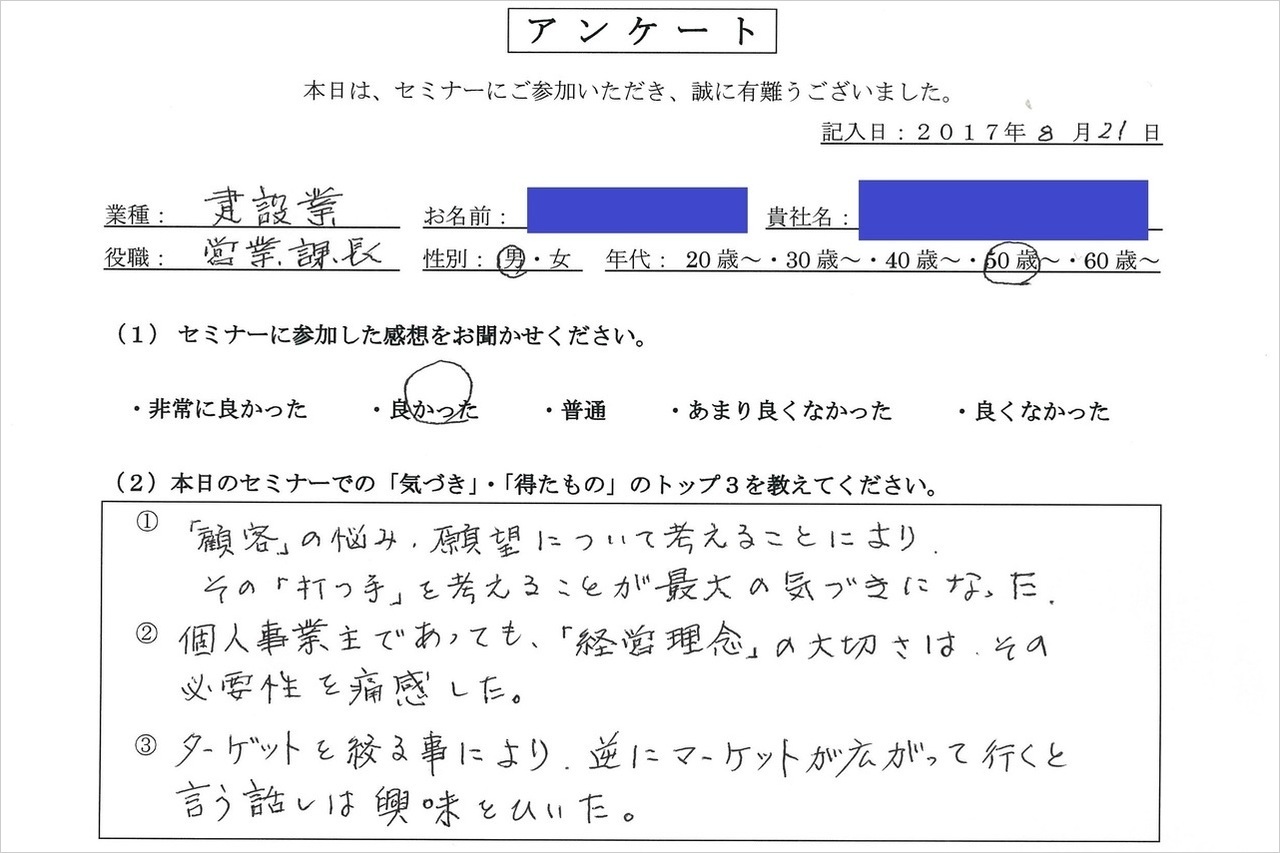 アンケート
本日は、セミナーにご参加いただき、誠に有難うございました。
記入日：２０１７年 8 月 21 日
業種： 建設業 お名前： 貴社名：
役職： 営業課長 性別： 男・女 年代： 20歳～・30歳～・40歳～・50歳～・60歳～
（１） セミナーに参加した感想をお聞かせください。
・非常に良かった ・良かった ・普通 ・あまり良くなかった ・良くなかった
（２）本日のセミナーでの「気づき」・「得たもの」のトップ３を教えてください。
① 「顧客」の悩み、願望について考えることにより、
その「打つ手」を考えることが最大の気づきになった。
② 個人事業主であっても、「経営理念」の大切さは、その
必要性を痛感した。
③ ターゲットを絞る事により、逆にマーケットが広がって行くと
言う話しは興味をひいた。